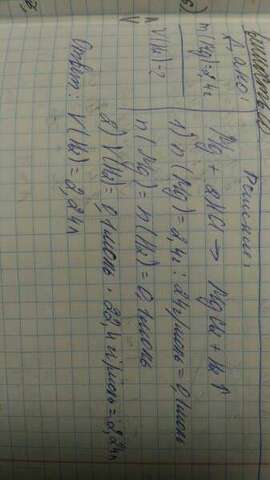 6)
Дано:
m(Mg)=2,4г
V(H₂)=?
Решение:
Mg + 2HCl → MgCl₂ + H₂↑
1) n(Mg) = 2,4г : 24г/моль = 0,1моль
n(Mg) = n(H₂) = 0,1моль
2) V(H₂) = 0,1моль · 22,4л/моль = 2,24л
Ответ: V(H₂) = 2,24л